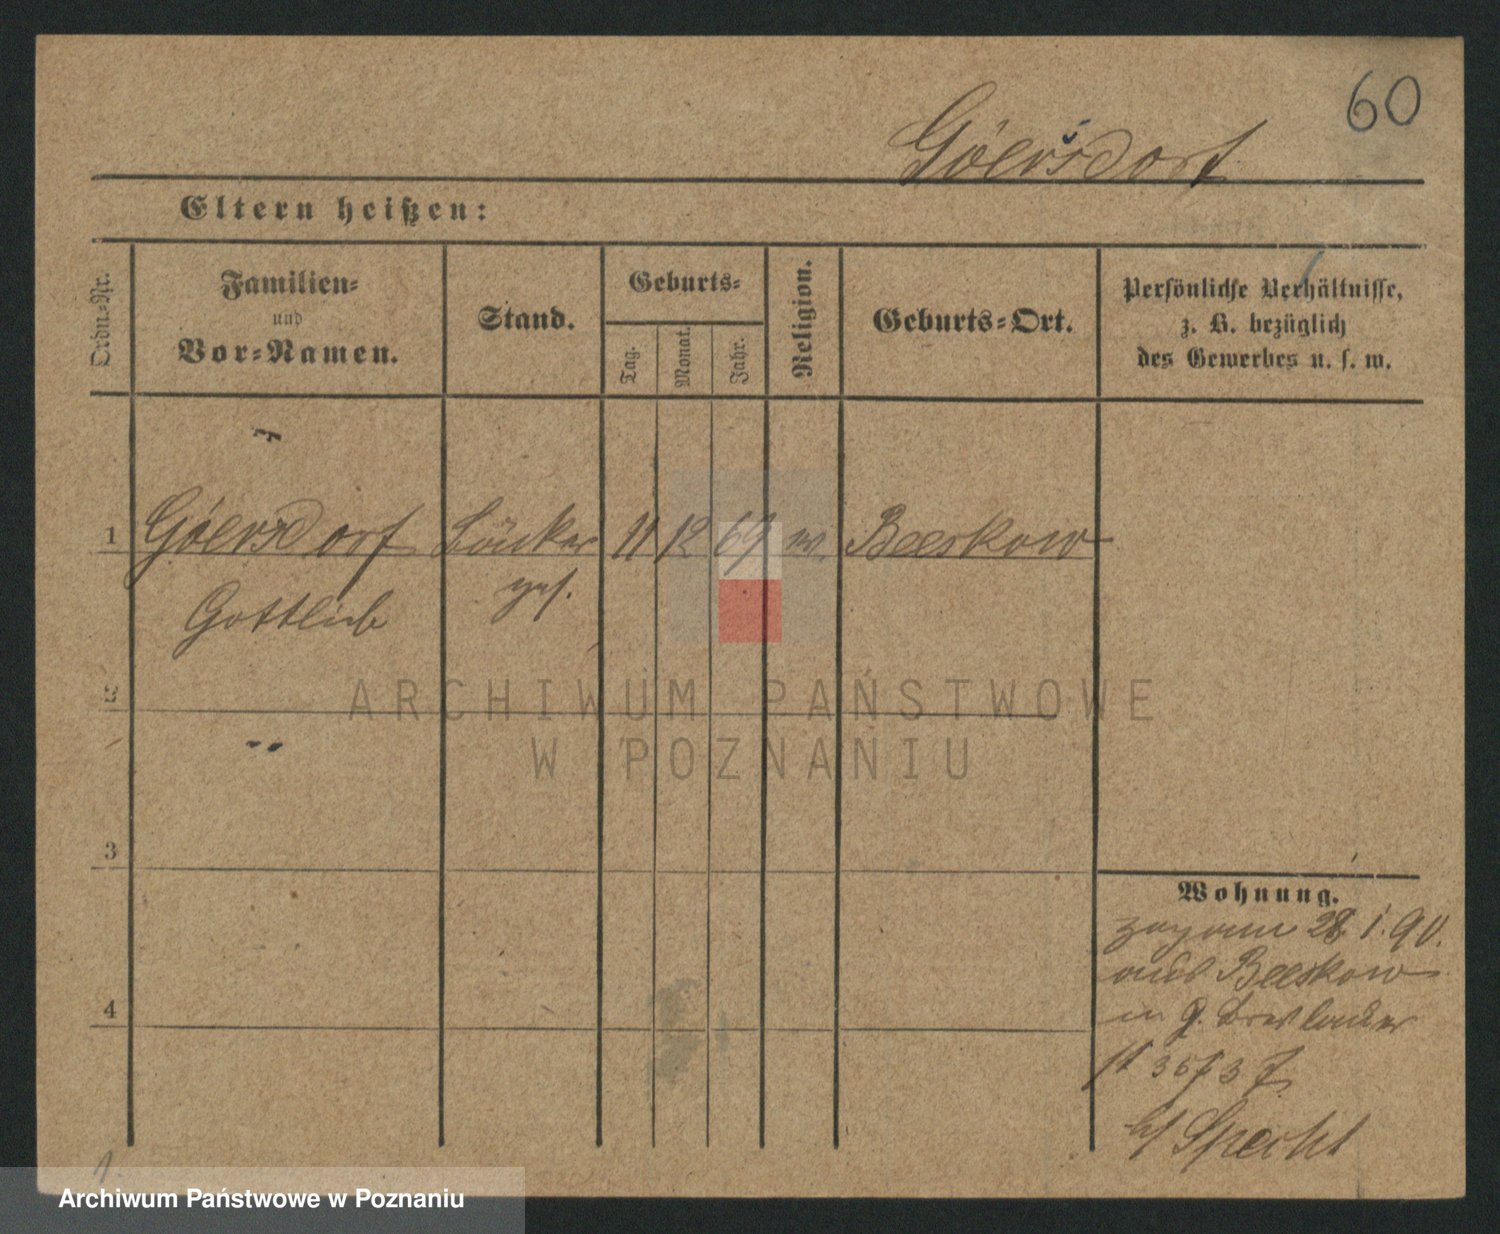 60
Göersdorf
Eltern heißen:
Ordn.-Nr.
Familien-
und
Vor-Namen.
Stand.
Geburts-
Tag.
Monat.
Jahr.
Religion.
Geburts-Ort.
Persönliche Verhältnisse,
z. B. bezüglich
des Gewerbes u. s. w.
1 Göersdorf Bäcker 11 12 69 Beeskow
Gottlieb
2
3
4
Wohnung.
28 1. 90.
aus Beeskow
in
b/ Specht
ARCHIWUM PAŃSTWOWE
W POZNANIU
Archiwum Państwowe w Poznaniu